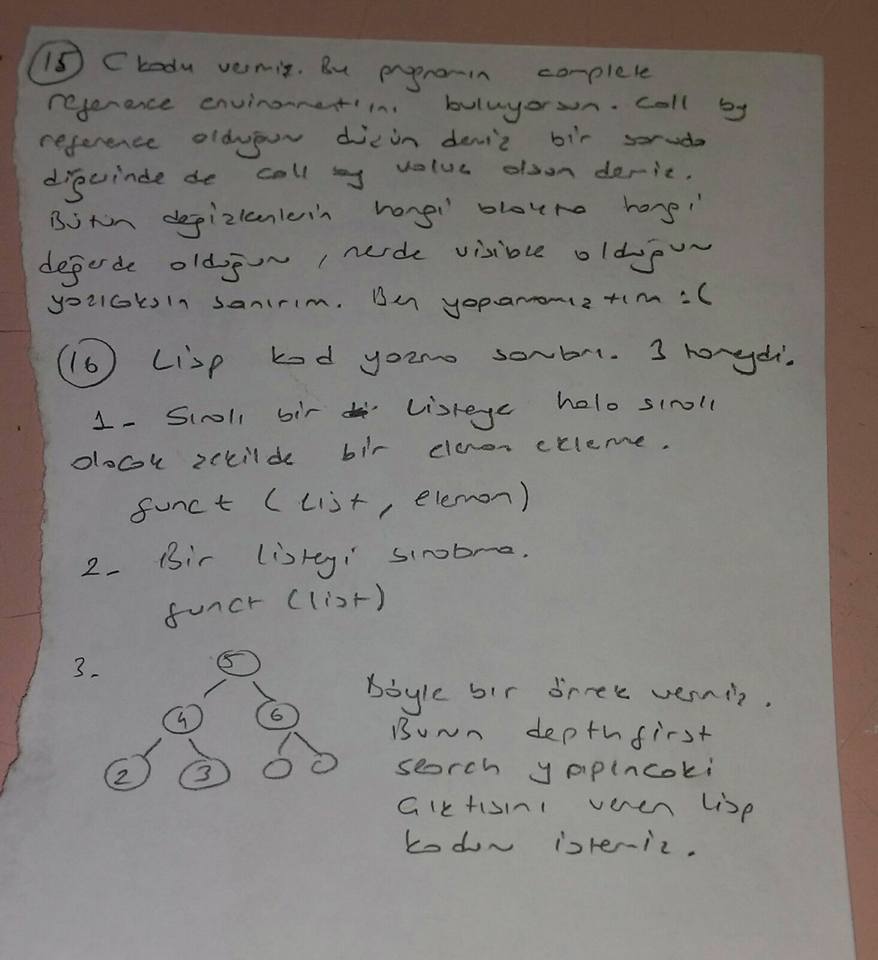 15 C kodu vermiş. Bu programın complete
reference environment'ını buluyorsun. Call by
reference olduğunu düşün demiş bir soruda
diğerinde de call by value olsun demiş.
Bütün değişkenlerin hangi blokta hangi
değerde olduğunu, nerde visible olduğunu
yazıcaksın sanırım. Ben yapamamıştım :(
16 Lisp kod yazma soruları. 3 taneydi.
1- Sıralı bir listeye hala sıralı
olacak şekilde bir eleman ekleme.
funct (list, eleman)
2- Bir listeyi sıralama.
funct (list)
3-
5
4 6
2 3
Böyle bir örnek vermiş.
Bunun depth first
search yapıncaki
çıktısını veren lisp
kodunu istemiş.